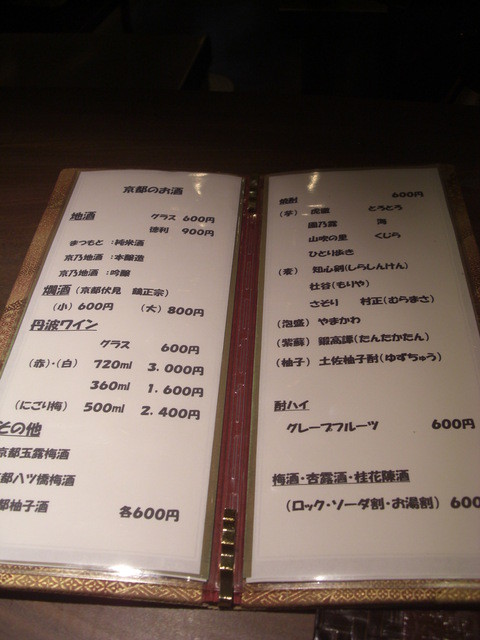 京都のお酒
地酒 グラス 600円
徳利 900円
まつもと：純米酒
京乃地酒：本醸造
京乃地酒：吟醸
燗酒（京都伏見 鶴正宗）
（小）600円 （大）800円
丹波ワイン
グラス 600円
（赤）・（白） 720ml 3.000円
360ml 1.600円
（にごり梅） 500ml 2.400円
その他
京都玉露梅酒
都八ツ橋梅酒
都柚子酒 各600円
焼酎 600円
（芋） とうとう
海
山吹の里 くじら
ひとり歩き
（麦） 知心剣（しらしんけん）
杜谷（もりや）
さそり 村正（むらまさ）
（泡盛） やまかわ
（紫蘇） 鍛高譚（たんたかたん）
（柚子） 土佐柚子酎（ゆずちゅう）
酎ハイ
グレープフルーツ 600円
梅酒・杏露酒・桂花陳酒
（ロック・ソーダ割・お湯割） 600